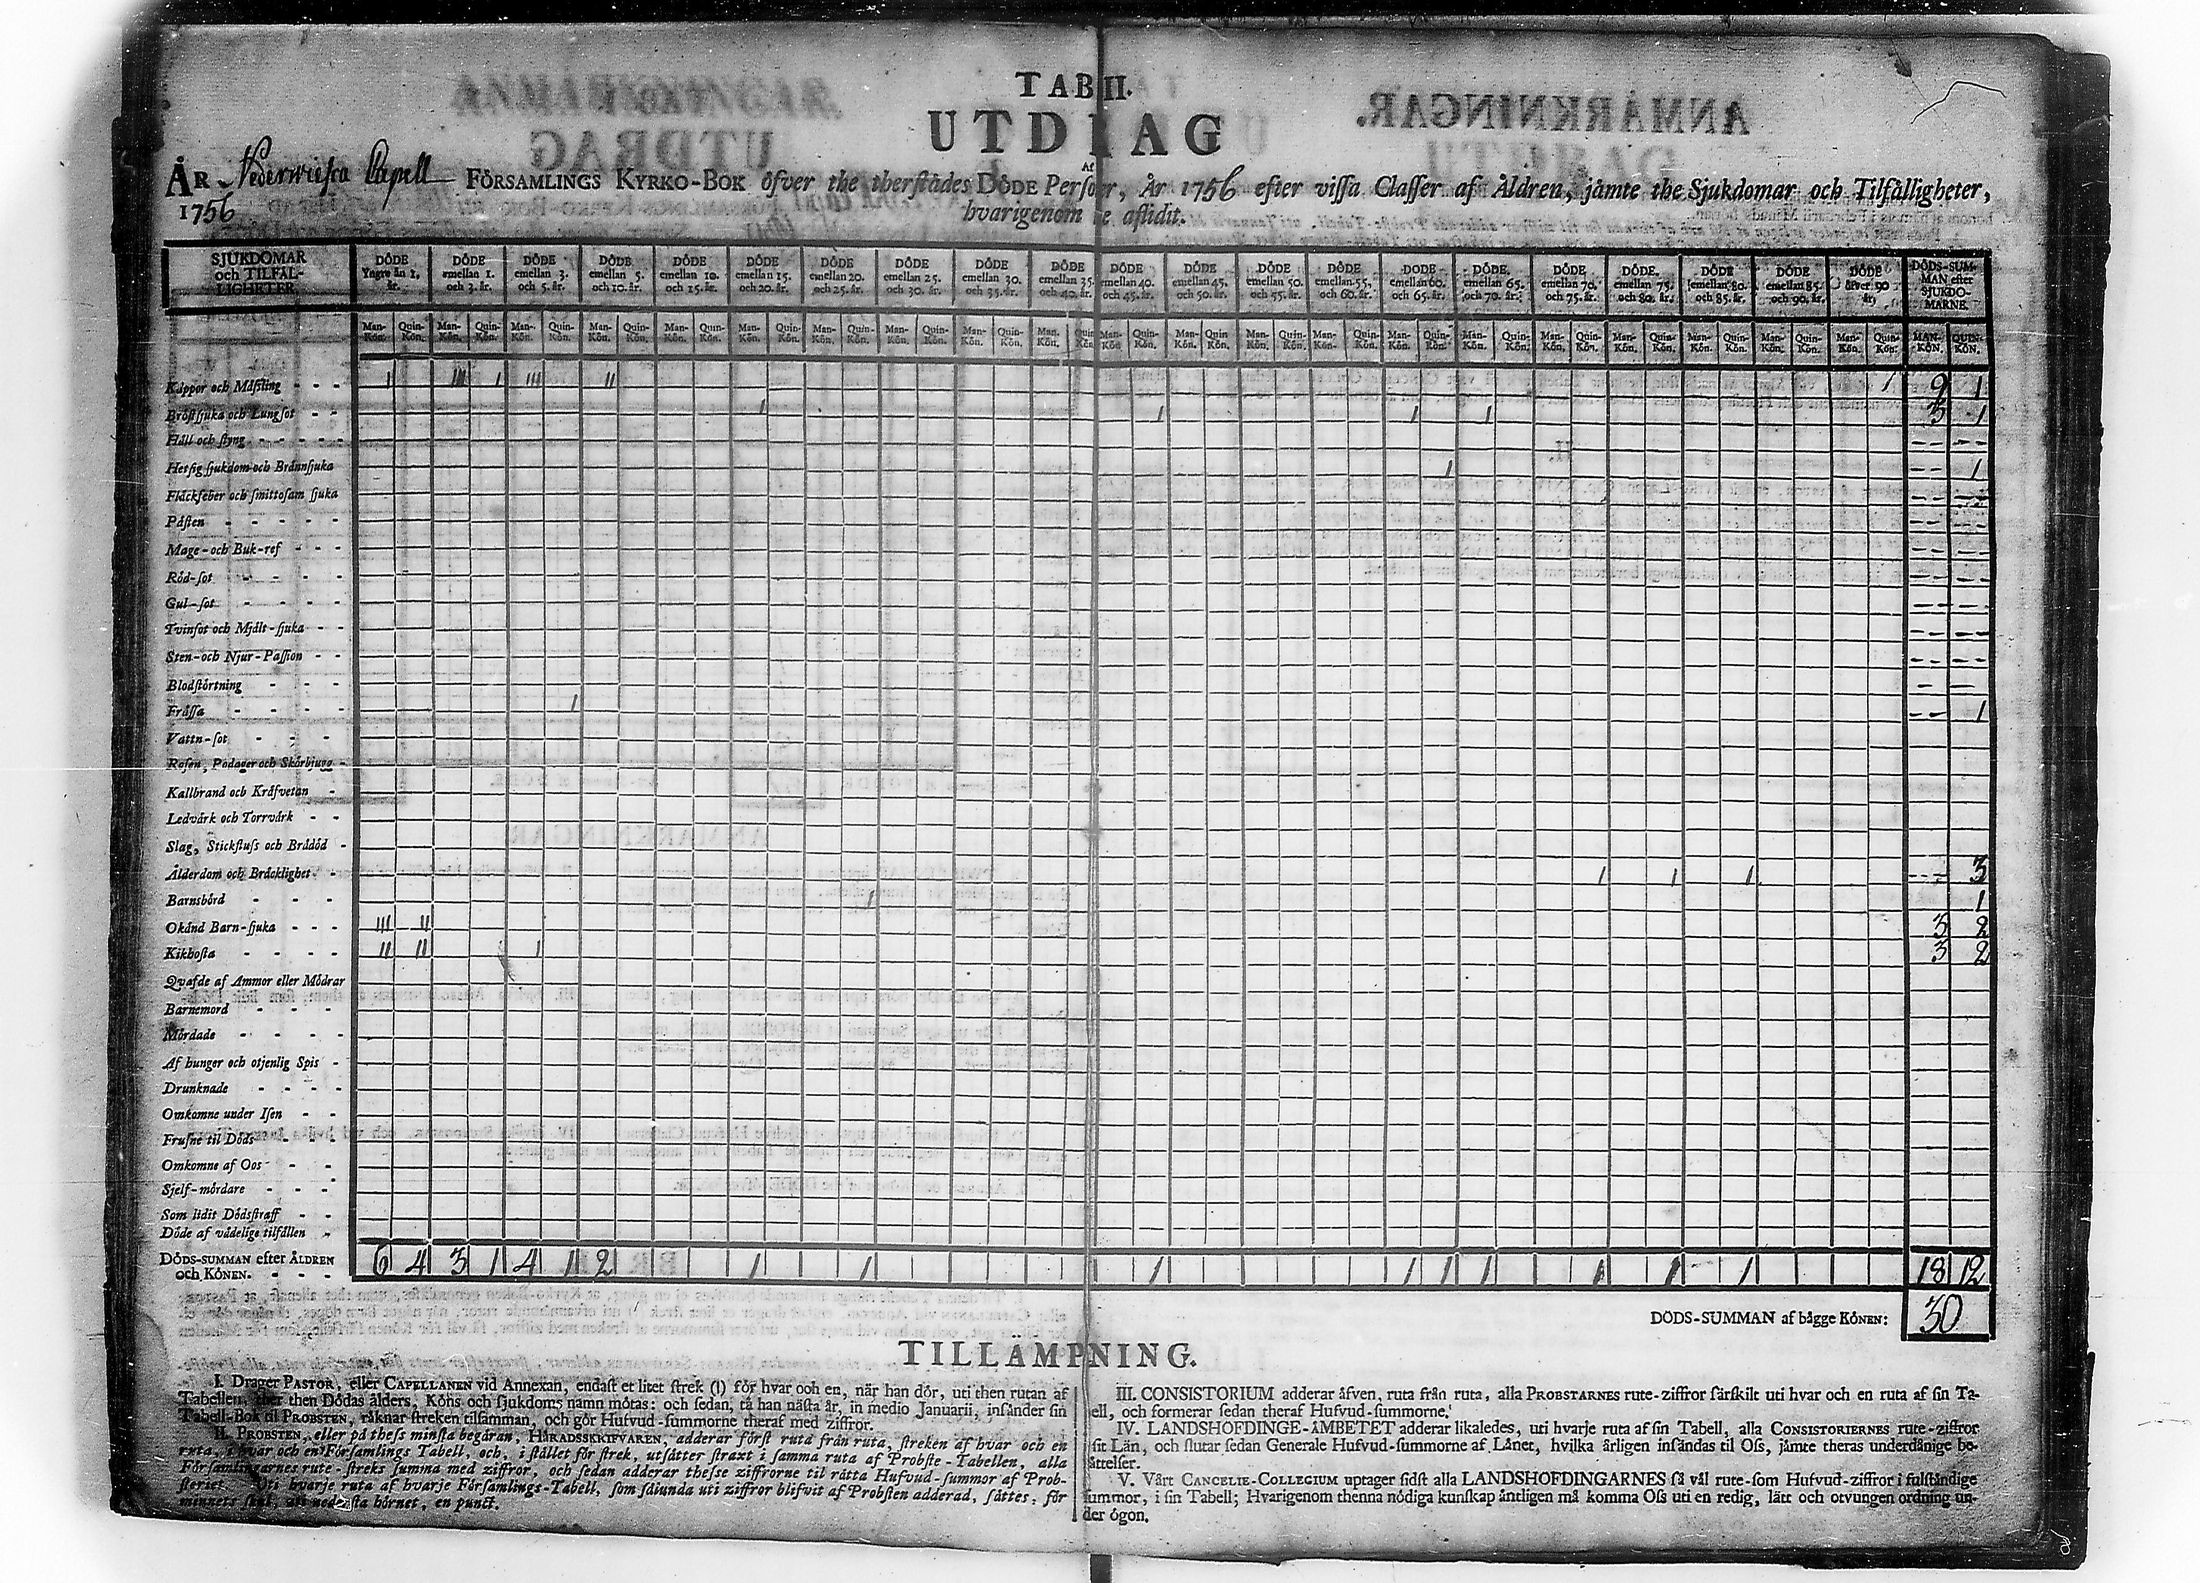 TAB II.
UTDRAG
AF
ÅR Nederwiesta Capell FÖRSAMLINGS KYRKO-BOK öfver the therstädes DÖDE Personer, År 1756 efter vissa Classer af Åldren, jämte the Sjukdomar och Tilfälligheter,
1756 hvarigenom de aflidit.
SJUKDOMAR och TILFÄLLIGHETER | DÖDE Yngre än 1. år. | DÖDE emellan 1. och 3. år. | DÖDE emellan 3. och 5. år. | DÖDE emellan 5. och 10. år. | DÖDE emellan 10. och 15. år. | DÖDE emellan 15. och 20. år. | DÖDE emellan 20. och 25. år. | DÖDE emellan 25. och 30. år. | DÖDE emellan 30. och 35. år. | DÖDE emellan 35. och 40. år. | DÖDE emellan 40. och 45. år. | DÖDE emellan 45. och 50. år. | DÖDE emellan 50. och 55. år. | DÖDE emellan 55. och 60. år. | DÖDE emellan 60. och 65. år. | DÖDE emellan 65. och 70. år. | DÖDE emellan 70. och 75. år. | DÖDE emellan 75. och 80. år. | DÖDE emellan 80. och 85. år. | DÖDE emellan 85. och 90. år. | DÖDE öfver 90 år. | DÖDS-SUMMAN efter SJUKDOMARNE.
Man-Kön. Quin-Kön. Man-Kön. Quin-Kön. Man-Kön. Quin-Kön. Man-Kön. Quin-Kön. Man-Kön. Quin-Kön. Man-Kön. Quin-Kön. Man-Kön. Quin-Kön. Man-Kön. Quin-Kön. Man-Kön. Quin-Kön. Man-Kön. Quin-Kön. Man-Kön. Quin-Kön. Man-Kön. Quin-Kön. Man-Kön. Quin-Kön. Man-Kön. Quin-Kön. Man-Kön. Quin-Kön. Man-Kön. Quin-Kön. Man-Kön. Quin-Kön. Man-Kön. Quin-Kön. Man-Kön. Quin-Kön. Man-Kön. Quin-Kön. Man-Kön. Quin-Kön. MAN-KÖN. QUIN-KÖN.
Kåppor och Mäßling - - - I III I III II 9 1
Bröstsjuka och Lungsot - - I I I I 3 1
Håll och styng - - - - -
Hetsig sjukdom och Brännsjuka I 1
Fläckfeber och smittosam sjuka
Pästen - - - - -
Mage- och Buk-ref - - -
Röd-sot - - - -
Gul-sot - - - -
Tvinsot och Mjält-sjuka - -
Sten- och Njur-Passion - -
Blodstörtning - - -
Frässa - - - - I 1
Vattn-sot - - -
Rosen, Podager och Skörbjugg -
Kallbrand och Kräfvetan -
Ledvärk och Torrvärk - -
Slag, Stickfluss och Brådöd -
Ålderdom och Bräcklighet - I I I 3
Barnsbörd - - - I 1
Okänd Barn-sjuka - - - III II 3 2
Kikhosta - - - - II II I 3 2
Qvafde af Ammor eller Mödrar
Barnemord - - - -
Mördade - - - -
Af hunger och otjenlig Spis -
Drunknade - - - -
Omkomne under Isen - -
Frusne til Döds - - -
Omkomne af Oos - -
Sjelf-mördare - - -
Som lidit Dödsstraff - -
Döde af vådelige tilfällen -
DÖDS-SUMMAN efter ÅLDREN och KÖNEN. - - - 6 4 3 1 4 1 2 1 1 1 1 1 1 1 1 1 18 12
DÖDS-SUMMAN af bägge KÖNEN: 30
TILLÄMPNING.
I. Drager PASTOR, eller CAPELLANEN vid Annexan, endast et litet strek (I) för hvar och en, när han dör, uti then rutan af
Tabellen, ther then Dödas ålders, Köns och sjukdoms namn mötas: och sedan, tå han nästa år, in medio Januarii, insänder sin
Tabell-Bok til PROBSTEN, räknar streken tilsamman, och gör Hufvud-summorne theraf med ziffror.
II. PROBSTEN, eller på thess minsta begäran, HÄRADSSKRIFVAREN, adderar först ruta från ruta, streken af hvar och en
ruta, i hvar och en Församlings Tabell, och, i stället för strek, utsätter straxt i samma ruta af Probste-Tabellen, alla
Församlingarnes rute-streks summa med ziffror, och sedan adderar thesse ziffrorne til rätta Hufvud-summor af Prob-
steriet. Uti hvarje ruta af hvarje Församlings-Tabell, som sålunda uti ziffror blifvit af Probsten adderad, sättes, för
minnets skul, uti nedersta hörnet, en punct.
III. CONSISTORIUM adderar äfven, ruta från ruta, alla PROBSTARNES rute-ziffror särskilt uti hvar och en ruta af sin Ta-
bell, och formerar sedan theraf Hufvud-summorne.
IV. LANDSHÖFDINGE-ÄMBETET adderar likaledes, uti hvarje ruta af sin Tabell, alla CONSISTORIERNES rute-ziffror
i sit Län, och slutar sedan Generale Hufvud-summorne af Länet, hvilka årligen insändas til Oss, jämte theras underdånige be-
rättelser.
V. Vårt CANCELIE-COLLEGIUM uptager sidst alla LANDSHÖFDINGARNES så väl rute- som Hufvud-ziffror i fulständige
summor, i sin Tabell; Hvarigenom thenna nödiga kunskap äntligen må komma Oss uti en redig, lätt och otvungen ordning un-
der ögon.